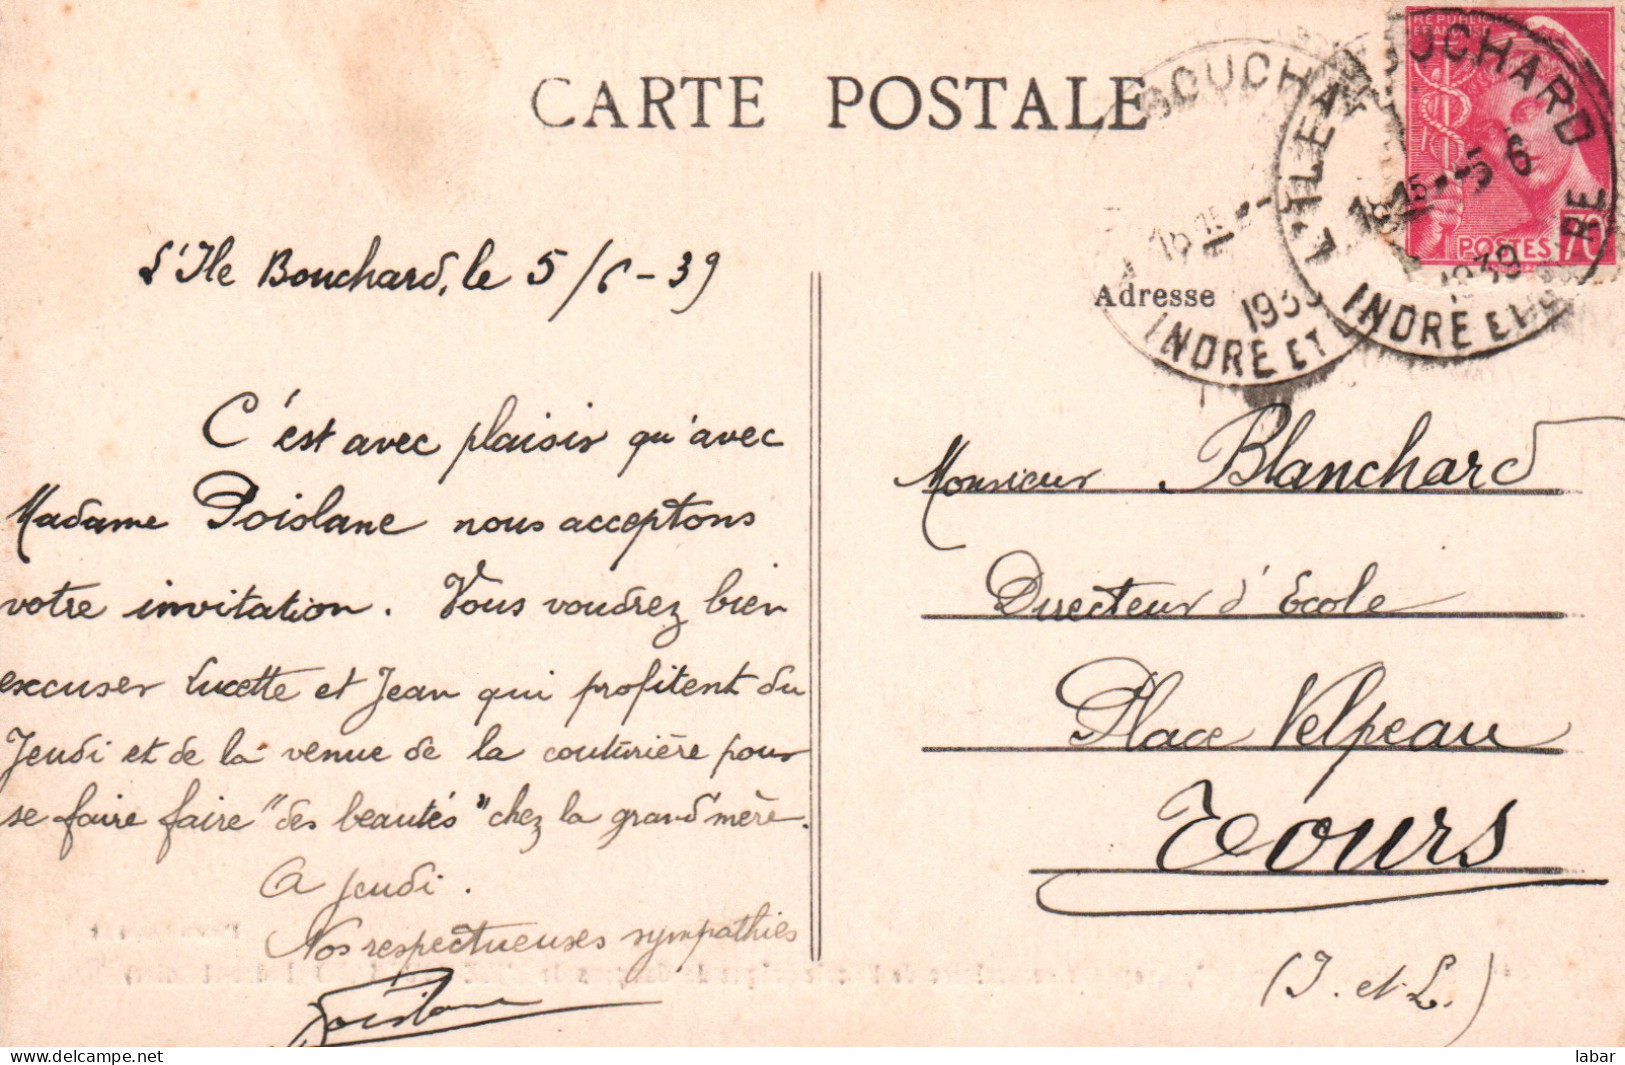 CARTE POSTALE
RÉPUBLIQUE
FRANÇAISE
POSTES 70
BOUCHARD
L'ILE BOUCHARD
18 15 - 5 6
1939
INDRE ET LOIRE
18 15
193
INDRE ET
Adresse
L'Ile Bouchard, le 5/6-39
C'est avec plaisir qu'avec
Madame Poislane nous acceptons
votre invitation. Vous voudrez bien
excuser Lucette et Jean qui profitent du
Jeudi et de la venue de la couturière pour
se faire faire "des beautés" chez la grand'mère.
A jeudi.
Nos respectueuses sympathies
Poislane
Monsieur Blanchard
Directeur d'Ecole
Place Velpeau
Tours
(I. et L.)
https://www.delcampe.net
labar